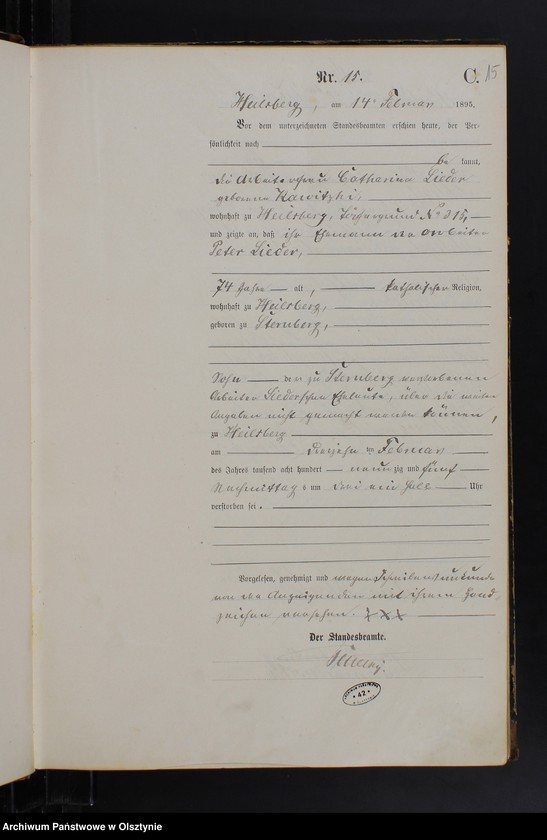 Nr. 15.
C. 15
Heilsberg, am 14. Februar 1895.
Vor dem unterzeichneten Standesbeamten erschien heute, der Per-
sönlichkeit nach
be kannt,
die Arbeiterfrau Catharina Lieder
geborene Kawitzki,
wohnhaft zu Heilsberg, No 315,
und zeigte an, daß ihr Ehemann der Arbeiter
Peter Lieder,
74 Jahre alt, katholischer Religion,
wohnhaft zu Heilsberg,
geboren zu Sternberg,
Sohn der zu Sternberg verstorbenen
Arbeiter Lieder'schen Eheleute, über die weitere
Angaben nicht gemacht werden können,
zu Heilsberg
am ten Februar
des Jahres tausend acht hundert neun zig und fünf
Nachmittags um drei ein halb Uhr
verstorben sei.
Vorgelesen, genehmigt und wegen Schreibensunkunde
von der Anzeigenden mit ihrem Hand-
zeichen versehen. XXX
Der Standesbeamte.
42
Archiwum Państwowe w Olsztynie